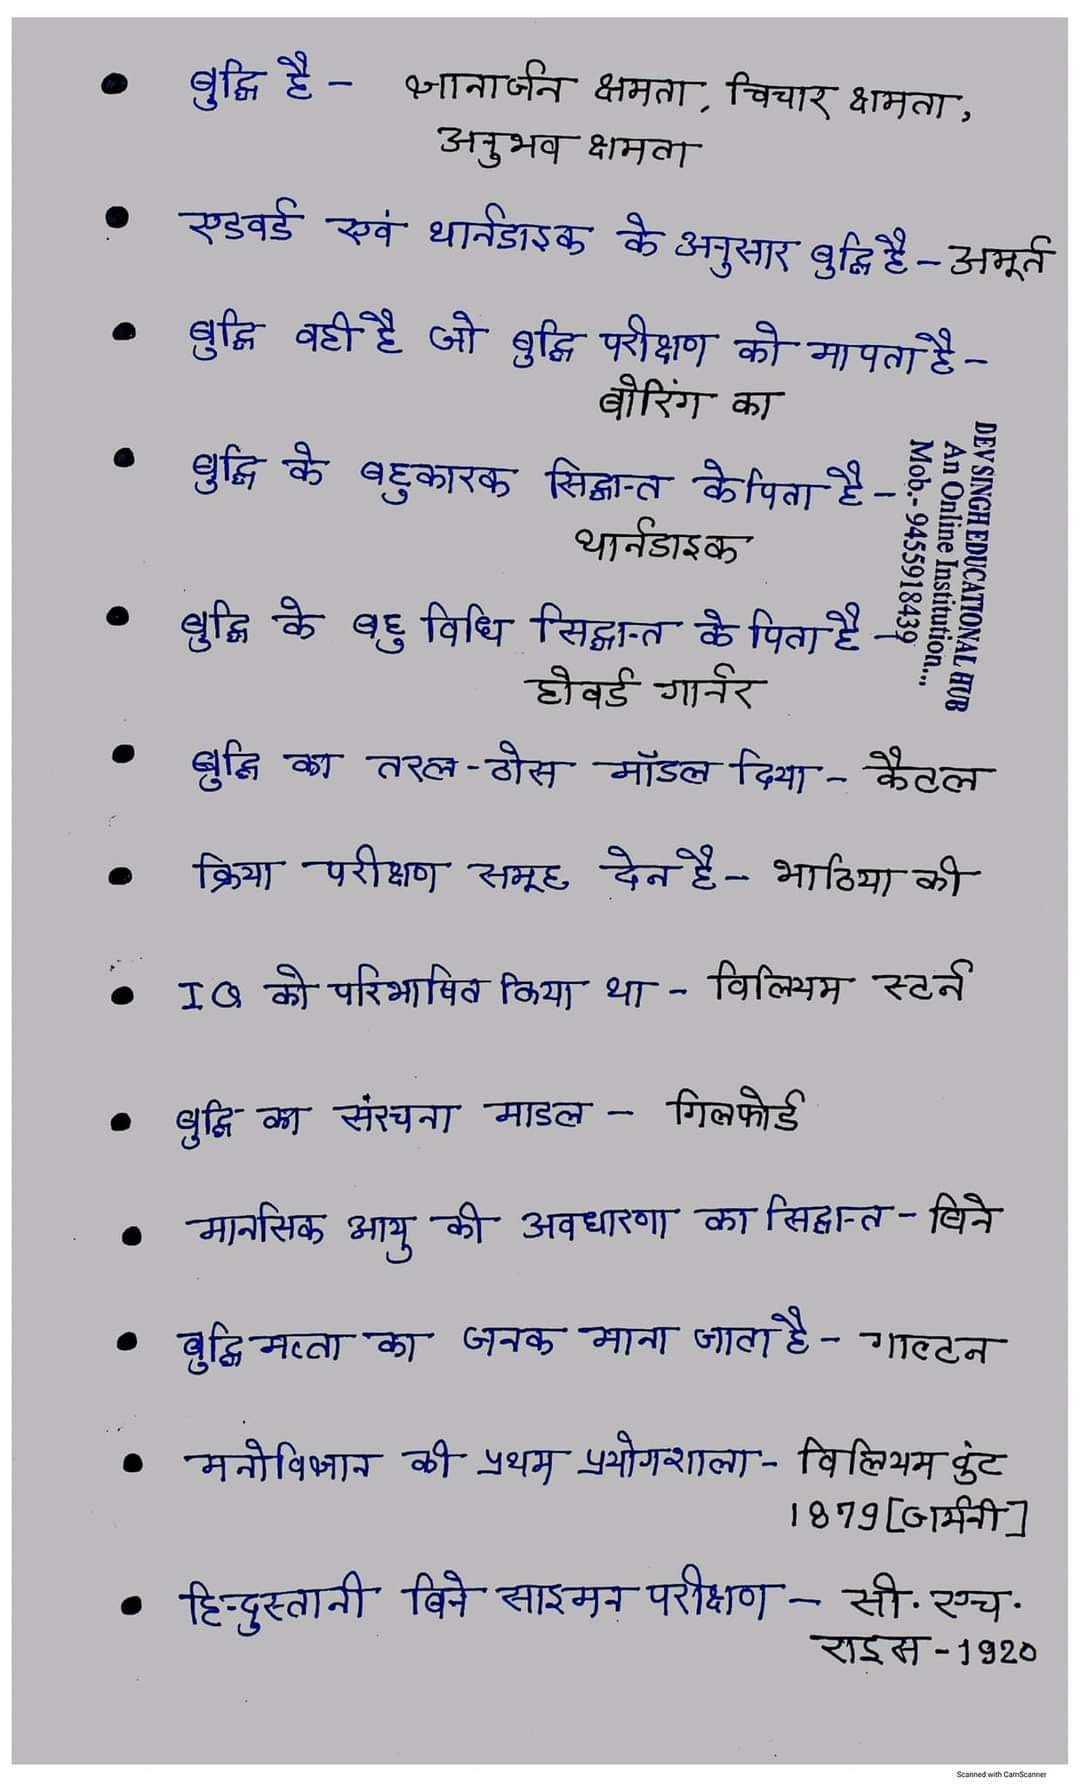 बुद्धि है - ज्ञानार्जन क्षमता, विचार क्षमता,
अनुभव क्षमता
एडवर्ड एवं थार्नडाइक के अनुसार बुद्धि है - अमूर्त
बुद्धि वही है जो बुद्धि परीक्षण को मापता है -
बोरिंग का
बुद्धि के बहुकारक सिद्धान्त के पिता है -
थार्नडाइक
बुद्धि के बहु विधि सिद्धान्त के पिता है -
होवर्ड गार्नर
बुद्धि का तरल - ठोस मॉडल दिया - कैटल
क्रिया परीक्षण समूह देन है - भाठिया की
IQ को परिभाषित किया था - विलियम स्टर्न
बुद्धि का संरचना माडल - गिलफोर्ड
मानसिक आयु की अवधारणा का सिद्धान्त - बिने
बुद्धिमत्ता का जनक माना जाता है - गाल्टन
मनोविज्ञान की प्रथम प्रयोगशाला - विलियम वुंट
1879 [जर्मनी]
हिन्दुस्तानी बिने साइमन परीक्षण - सी. एच.
राइस - 1920
DEV SINGH EDUCATIONAL HUB
An Online Institution...
Mob.- 9455918439
Scanned with CamScanner